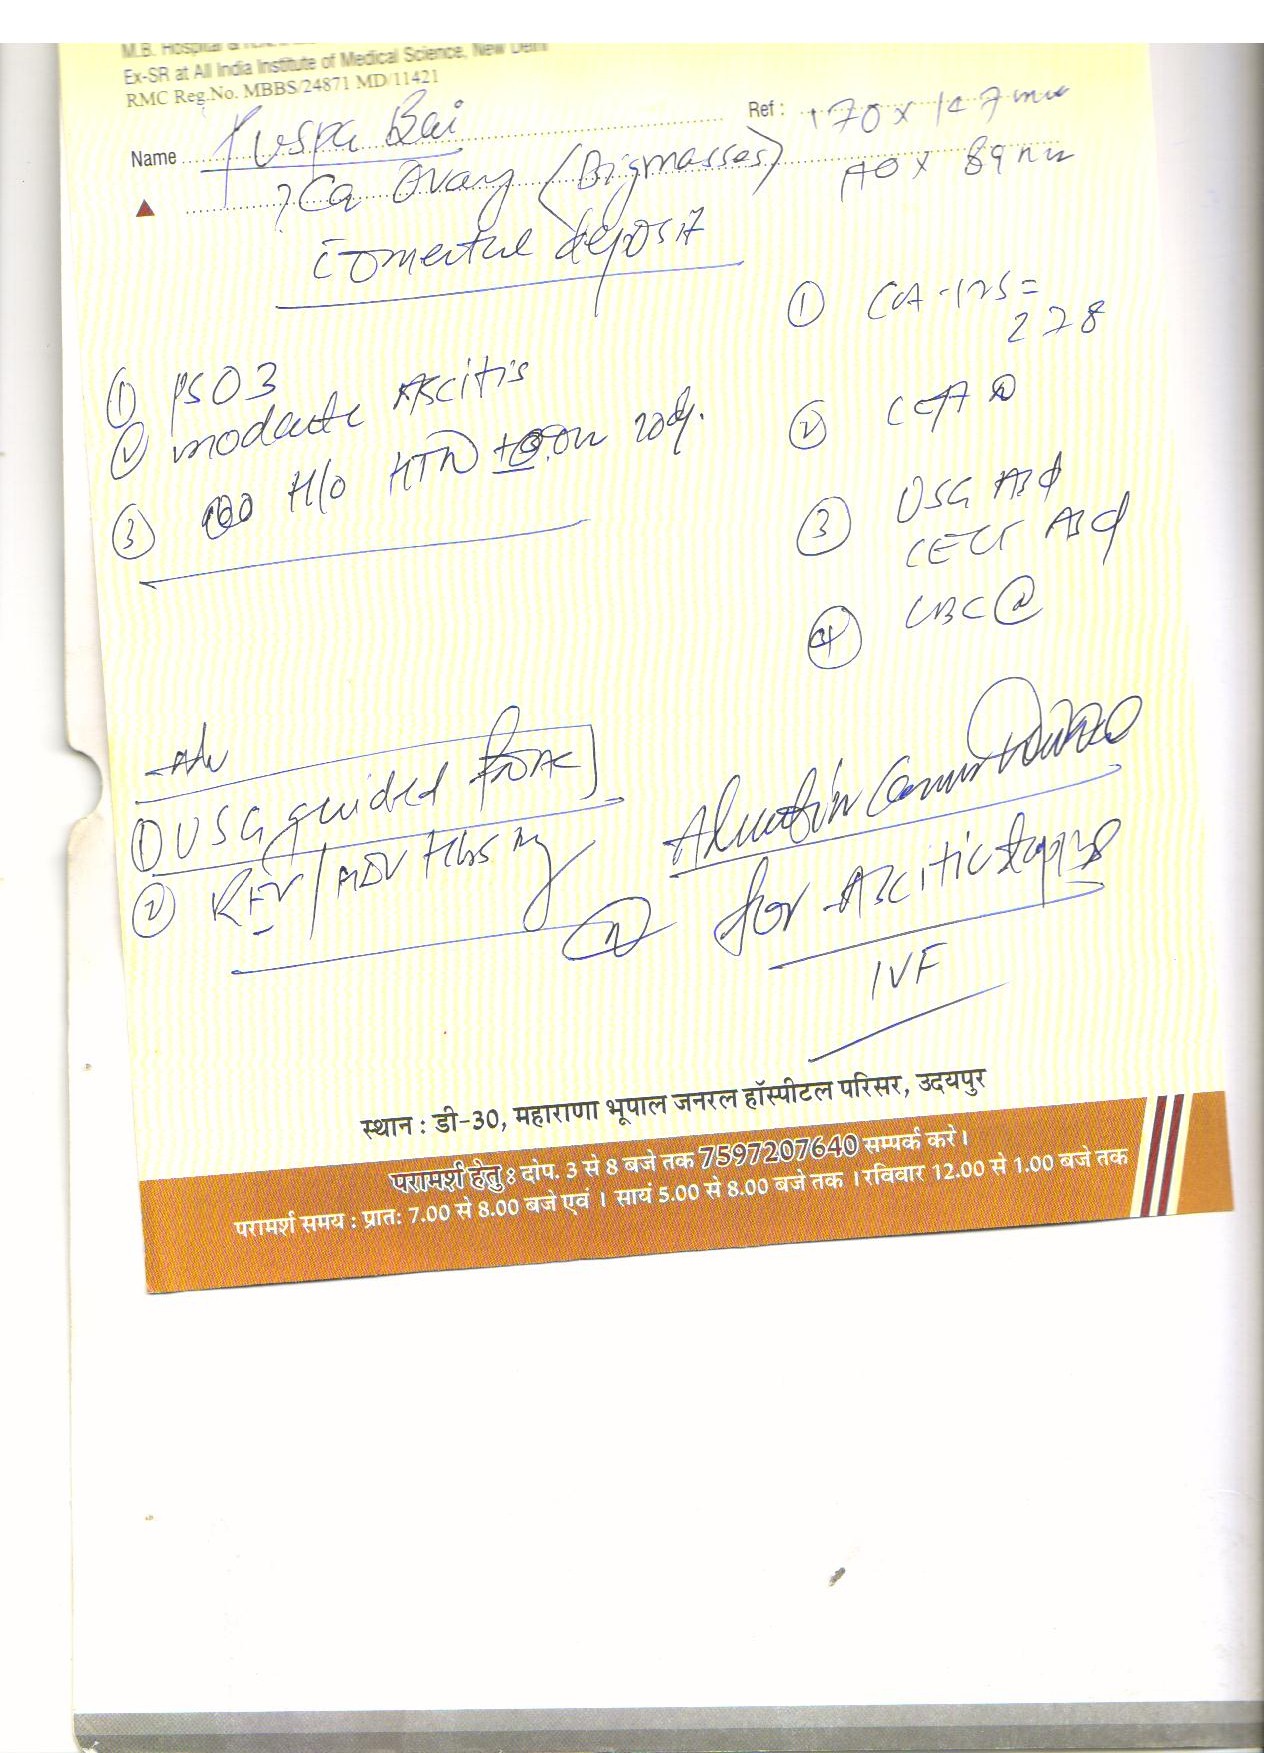 Ex-SR at All India Institute of Medical Science, New Delhi
RMC Reg.No. MBBS/24871 MD/11421
Name Puspa Bai
Ref : 170 x 147 mm
110 x 89 mm
? Ca Ovary (Big masses)
c̄ omental deposit
① CA-125 =
278
① PS03
② moderate Ascitis
③ H/o HTN + on
② CEA
③ USG Abd
CECT Abd
④ CBC Ⓝ
Adv
① USG guided FNAC
② RFT /
for Ascitic tapping
IVF
स्थान : डी-30, महाराणा भूपाल जनरल हॉस्पीटल परिसर, उदयपुर
परामर्श हेतु : दोप. 3 से 8 बजे तक 7597207640 सम्पर्क करे।
परामर्श समय : प्रातः 7.00 से 8.00 बजे एवं । सायं 5.00 से 8.00 बजे तक । रविवार 12.00 से 1.00 बजे तक